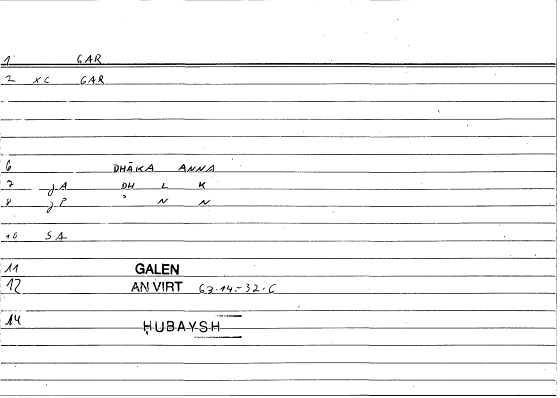 1 GAR
2 XC GAR
6 DHĀKA ANNA
7 JA DH L K
8 JP N N
10 SA
11 GALEN
12 AN VIRT 63.14.-32.6
14 ḤUBAYSH